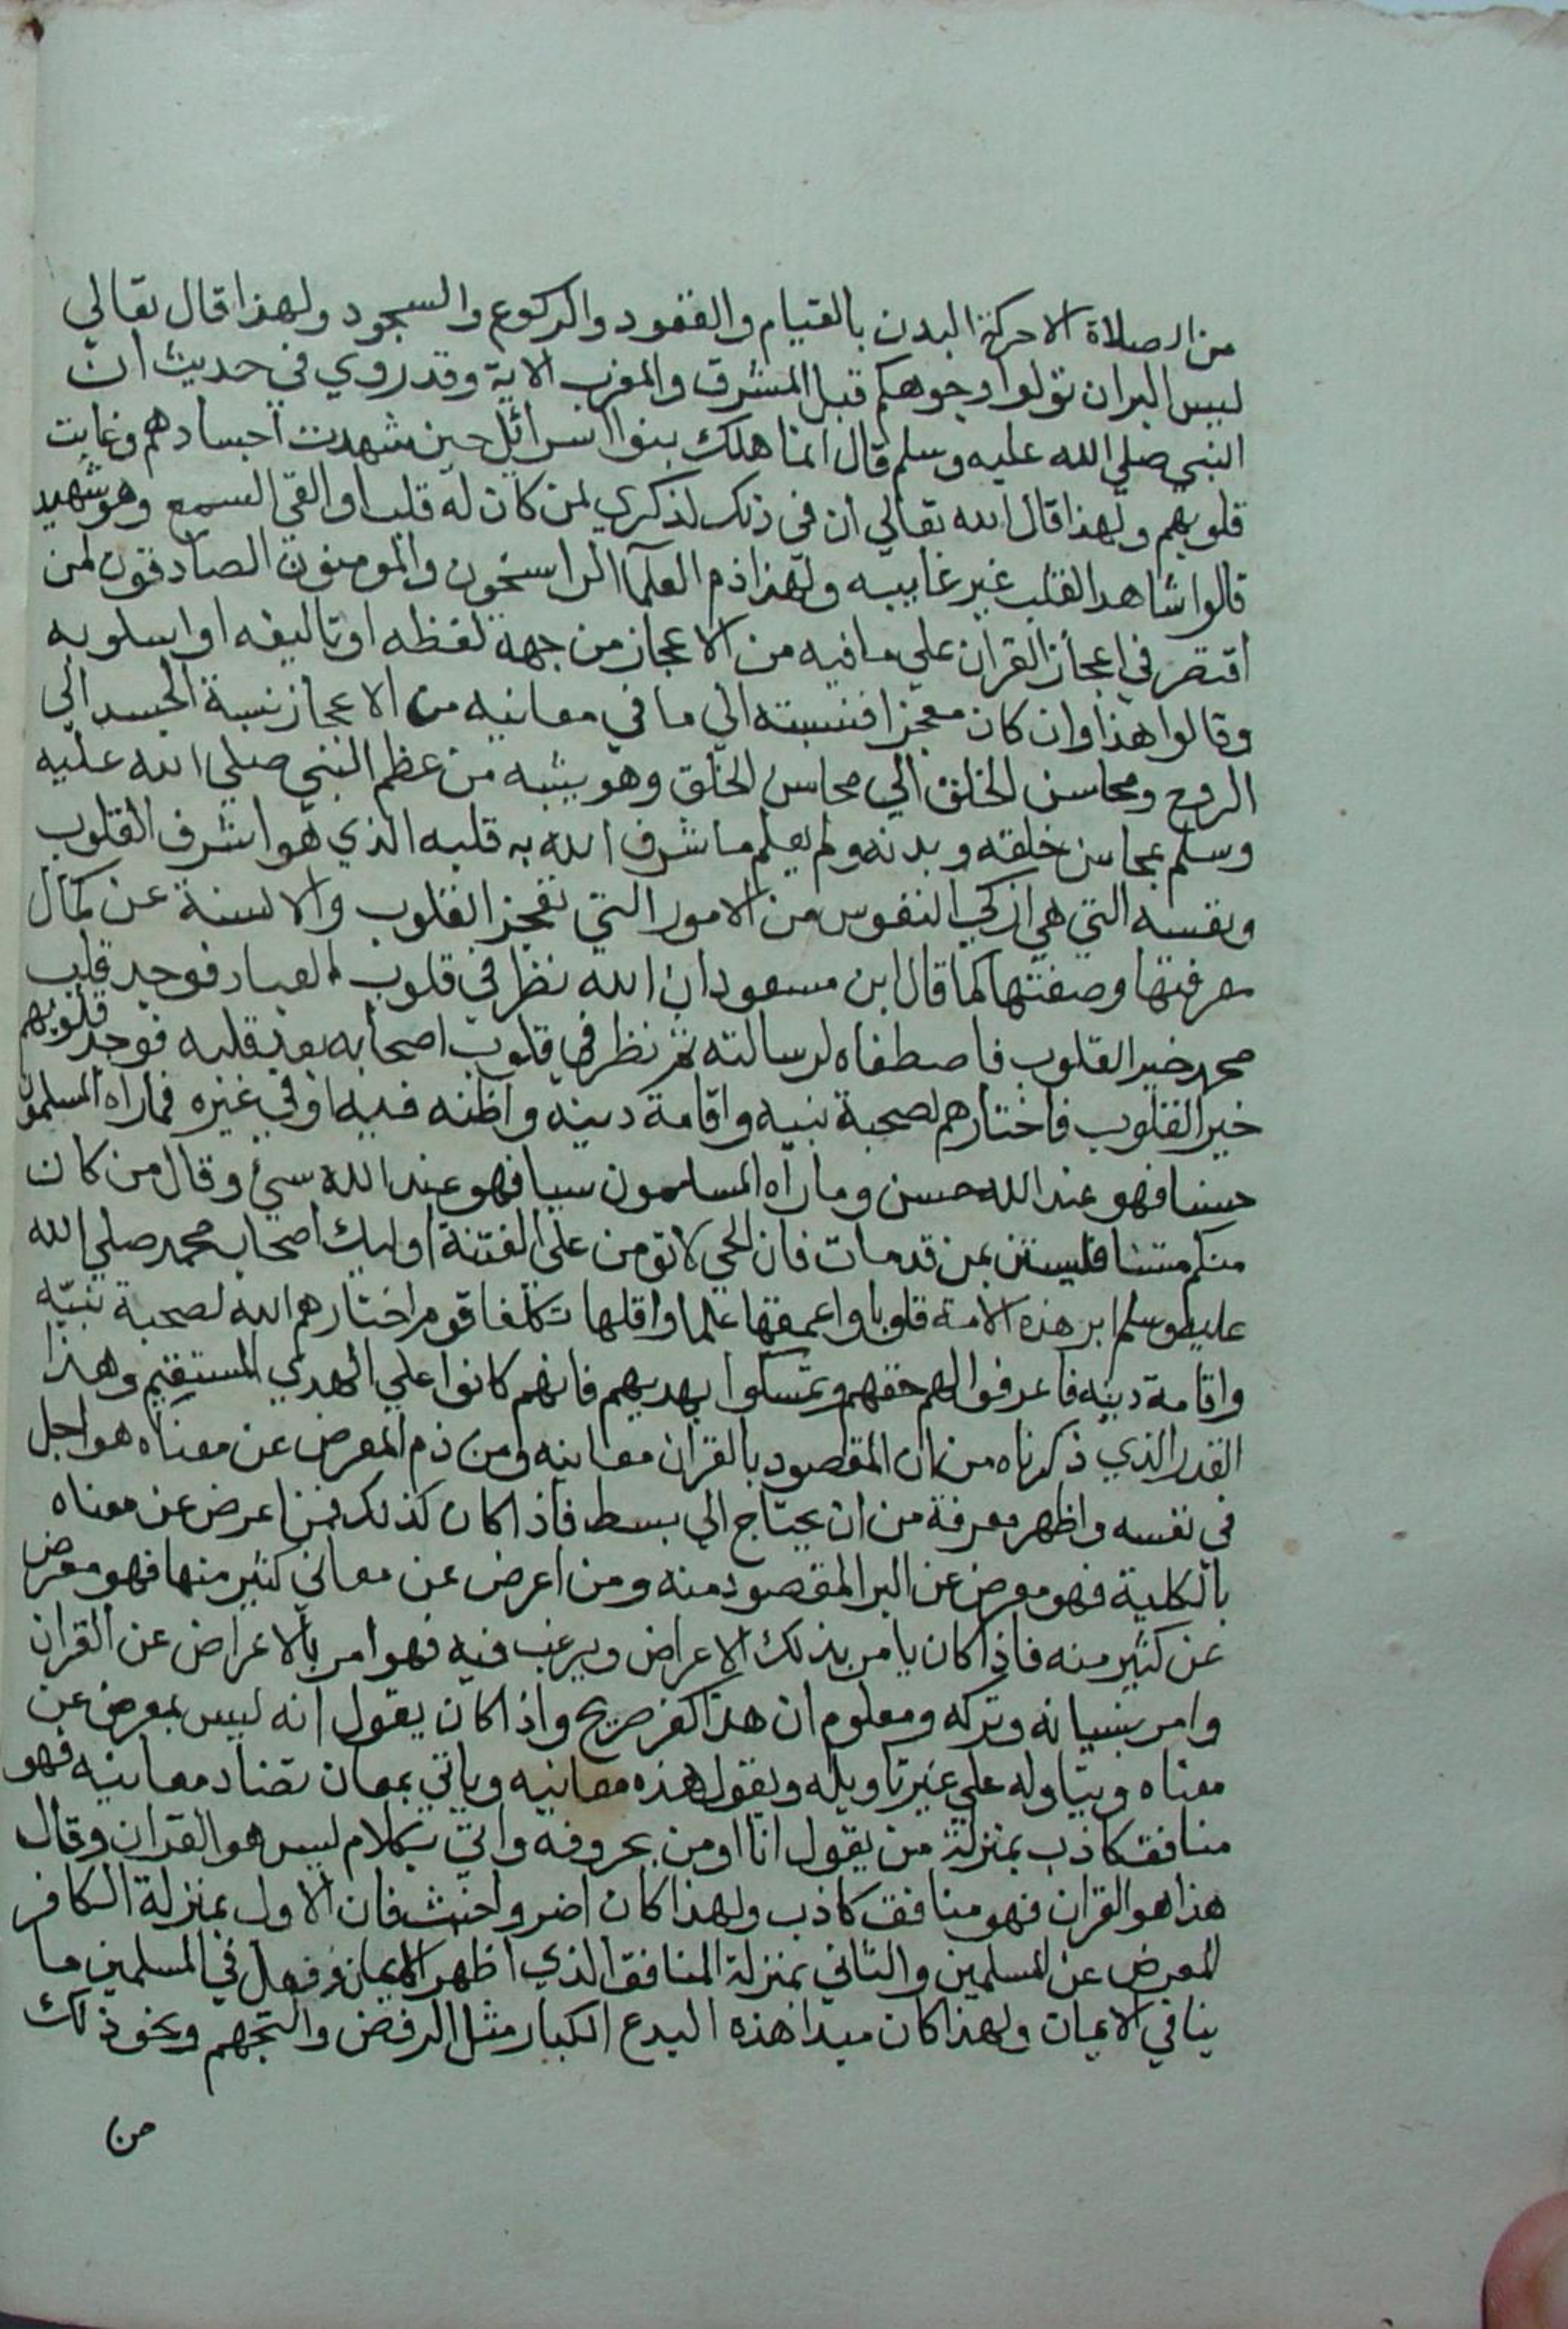 من الصلاة الا حركة البدن بالقيام والقعود والركوع والسجود ولهذا قال تعالي
ليس البر ان تولوا وجوهكم قبل المشرق والمغرب الاية وقد روي في حديث ان
النبي صلي الله عليه وسلم قال انما هلك بنوا اسرائل حين شهدت اجسادهم وغابت
قلوبهم ولهذا قال الله تعالي ان في ذلك لذكري لمن كان له قلب او القي السمع وهو شهيد
قالوا شاهد القلب غير غايبه ولهذا ذم العلمآ الراسخون والمومنون الصادقون لمن
اقتصر في اعجاز القران علي ما فيه من الاعجاز من جهة لفظه او تاليفه او اسلوبه
وقالوا هذا وان كان معجزا فنسبته الي ما في معانيه من الاعجاز نسبة الجسد الي
الروح ومحاسن الخلق الي محاسن الخلق وهو يشبه من عظم النبي صلي الله عليه
وسلم بمحاسن خلقه وبدنه ولم يعلم ما شرف الله به قلبه الذي هو اشرف القلوب
ونفسه التي هي ازكي النفوس من الامور التي تعجز القلوب والالسنة عن كمال
معرفتها وصفتها كما قال ابن مسعود ان الله نظر في قلوب العباد فوجد قلب
محمد خير القلوب فاصطفاه لرسالته ثم نظر في قلوب اصحابه بعد قلبه فوجد قلوبهم
خير القلوب فاختارهم لصحبة نبيه واقامة دينه واظنه فيه او في غيره فما راه المسلمون
حسنا فهو عند الله حسن وما رآه المسلمون سيا فهو عند الله سيئ وقال من كان
منكم مستنا فليستن بمن قد مات فان الحي لا تومن علي الفتنة اوليك اصحاب محمد صلي الله
عليه وسلم ابر هذه الامة قلوبا واعمقها علما واقلها تكلفا قوم اختارهم الله لصحبة نبيّه
واقامة دينه فاعرفوا لهم حقهم وتمسكوا بهديهم فانهم كانوا علي الهدي المستقيم وهذا
القدر الذي ذكرناه من ان المقصود بالقران معانيه ومن ذم المعرض عن معناه هو اجل
في نفسه واظهر معرفة من ان يحتاج الي بسط فاذا كان كذلك فمن اعرض عن معناه
بالكلية فهو معرض عن البر المقصود منه ومن اعرض عن معاني كثير منها فهو معرض
عن كثير منه فاذا كان يامر بذلك الاعراض ويرغب فيه فهو امر بالاعراض عن القران
وامر بنسيانه وتركه ومعلوم ان هذا كفر صريح واذا كان يقول انه ليس بمعرض عن
معناه ويتاوله علي غير تاويله ويقول هذه معانيه وياتي بمعان تضاد معانيه فهو
منافق كاذب بمنزلة من يقول انا اومن بحروفه واتي بكلام ليس هو القران وقال
هذا هو القران فهو منافق كاذب ولهذا كان اضر واخبث فان الاول بمنزلة الكافر
المعرض عن المسلمين والثاني بمنزلة المنافق الذي اظهر الايمان وفعل في المسلمين ما
ينافي الايمان ولهذا كان مبدا هذه البدع الكبار مثل الرفض والتجهم ونحو ذلك
من